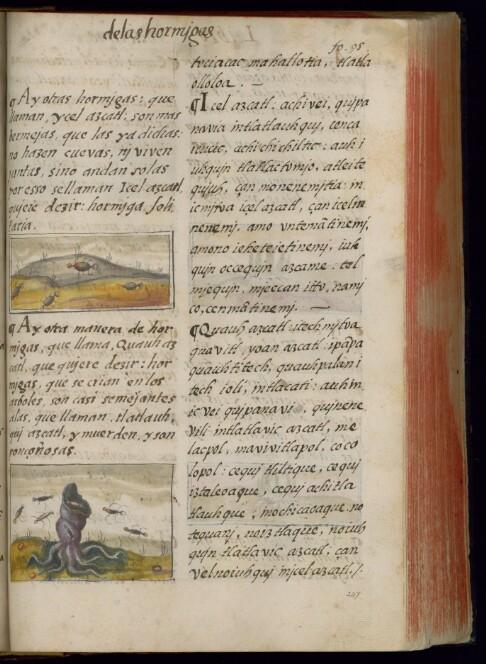 de las hormigas
fo. 95
¶ Ay otras hormigas: que
llaman, ycel azcatl: son mas
bermejas, que las ya dichas.
no hazen cuevas, nj viven
juntas, sino andan solas
por esso se llaman Icel azcatl
qujere dezir: hormiga soli
taria.
¶ Ay otra manera de hor
migas, que llama, Quauh az
catl, que qujere dezir: hor
migas, que se crian en los
arboles, son casi semejantes
alas, que llaman. tlatlauh
quj azcatl, y muerden, y son
ponçoñosas.
tlatla
olloloa.
¶ Icel azcatl: achi vei, qujpa
navia in tlatlauhquj, cenca
achi chichiltic: auh i
can
icel azcatl, çan icel in
nenemj. amo
amono
qujn oc cequjn azcame:
¶ Quauh azcatl: itech njtva
quavitl, yoan azcatl: ipãpa
quauhtitech, quauhpalan i
tech ioli, in tlacati: auh in
ic vei qujpanavi, qujnene
vili in tlatlavic azcatl, me
lacpol, mavivitlapol, coco
lopol: cequj tliltique, cequj
iztaleoaque, cequj achi tla
tlauhque, mochicaoaque no
tequanj, no iztlaque, no iuh
qujn tlatlavic azcatl, çan
vel no iuhquj in jcel azcatl./.
247